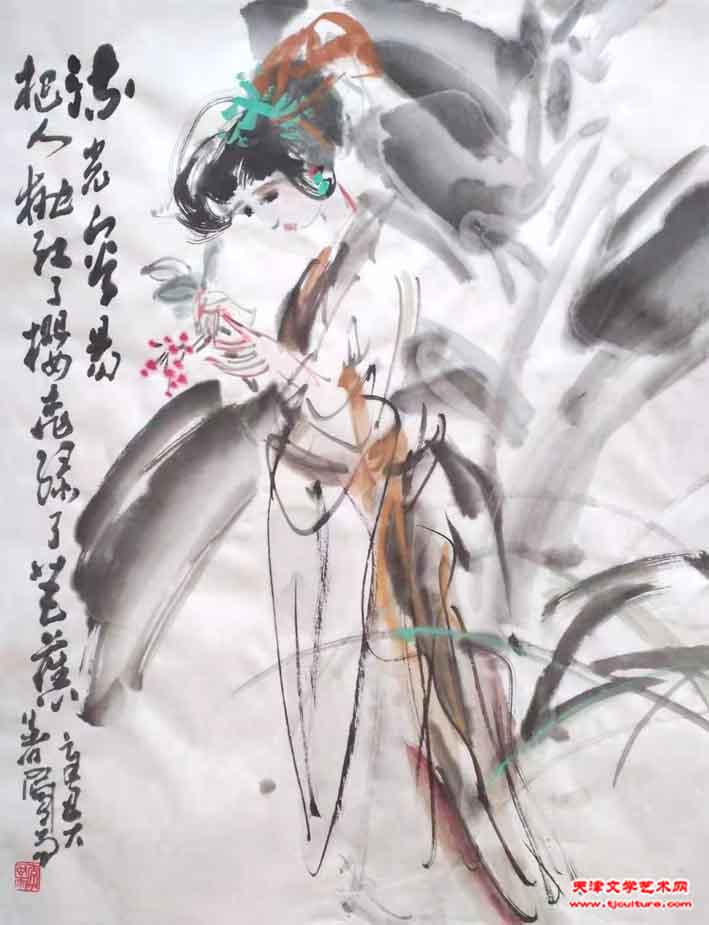 流光容易
把人抛红了樱花绿了芭蕉
辛丑大
天津文学艺术网
www.tjculture.com